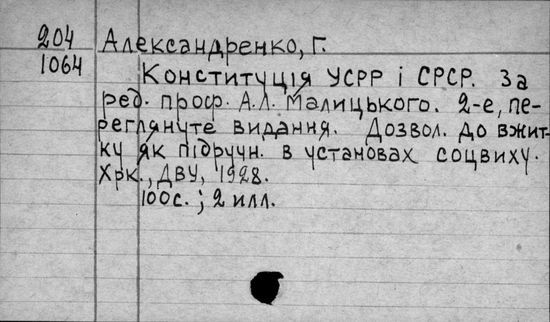 204 Александренко, Г.
1064 Конституція УСРР і СРСР. За
ред. проф. А.Л. Малицького. 2-е, пе-
реглянуте видання. Дозвол. до вжит-
ку як підручн. в установах соцвиху.
Хрк., ДВУ, 1928.
100с.; 2 илл.